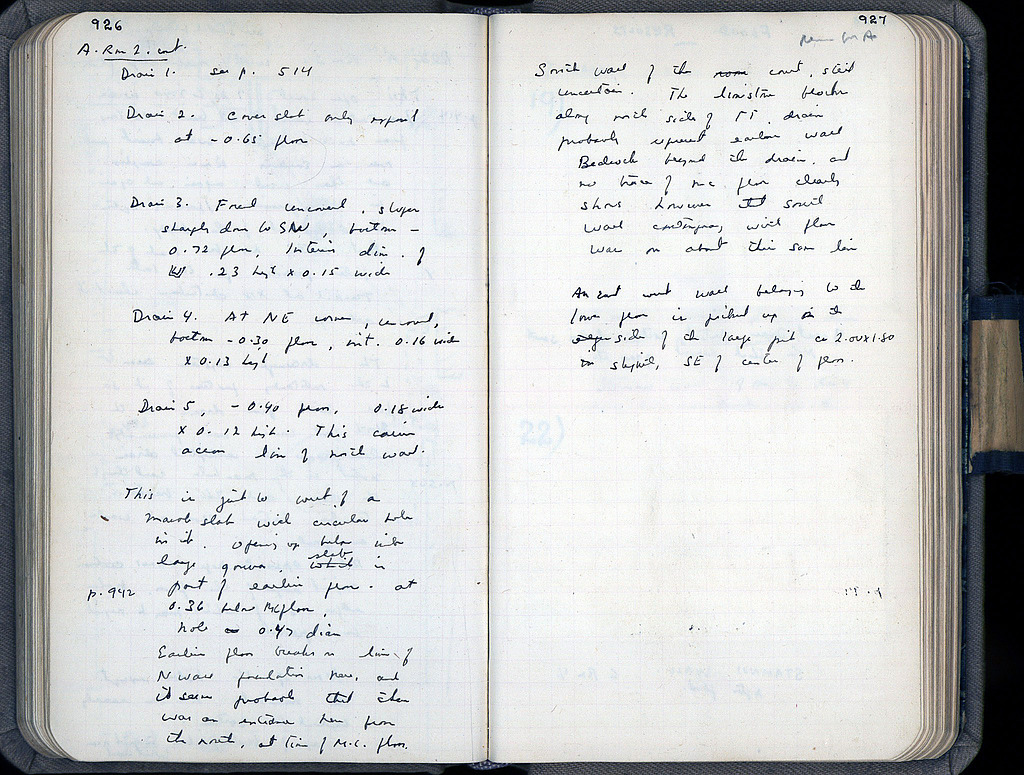 926
A. Rm 2. cont.
Drain 1. see p. 514
Drain 2. Cover slab only exposed
at - 0.65 floor
Drain 3. Found uncovered, slopes
sharply down to SW, bottom -
0.72 floor, Interior dim. of
.23 high x 0.15 wide
Drain 4. At NE corner, uncovered,
bottom - 0.30 floor, int. 0.16 wide
x 0.13 high
Drain 5, - 0.40 floor, 0.18 wide
x 0.12 high. This comes
across line of north wall.
This is just to west of a
marble slab with circular hole
in it. Opening up below into
large slab in
p.942 part of earlier floor. at
0.36 below MC floor,
hole 0.47 diam
Earlier floor breaks on line of
N wall foundation here, and
it seems probable that there
was an entrance here from
the north, at time of M.C. floor.
927
South wall of the court, still
uncertain. The limestone blocks
along north side of drain
probably represent earlier wall
Bedrock beyond the drain, and
no trace of m.c. floor clearly
shows however that south
wall contemporary with floor
was on about this same line
An east west wall belonging to the
lower floor is picked up in the
side of the large pit ca 2.00x1.80
SE of center of floor.